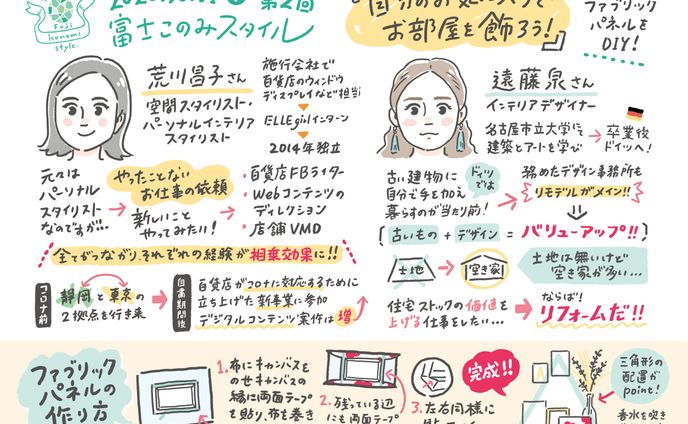 Fuji
konomi
style.
第2回
富士このみスタイル
お部屋を飾ろう!」
ファブリック
パネルを
DIY!
荒川昌子さん
空間スタイリスト・
パーソナルインテリア
スタイリスト
施行会社で
百貨店のウィンドウ
ディスプレイなど担当
ELLE girlインターン
2014年独立
元々は
パーソナル
スタイリスト
なのですが…
やったことない
お仕事の依頼
新しいこと
やってみたい!
・百貨店FBライター
・Webコンテンツの
ディレクション
・店舗VMD
全てがつながり、それぞれの経験が相乗効果に!!
コロナ前
静岡と東京の
2拠点を行き来
自粛期間後
百貨店がコロナに対応するために
立ち上げた新事業に参加
デジタルコンテンツ案件は増
遠藤泉さん
インテリアデザイナー
名古屋市立大学にて
建築とアートを学ぶ
卒業後
ドイツへ!
古い建物に
自分で手を加え
暮らすのが当たり前!
ドイツ
では
務めたデザイン事務所も
リモデルがメイン!!
古いもの + デザイン = バリューアップ!!
土地
空き家
土地は無いけど
空き家が多い…
住宅ストックの価値を
上げる仕事をしたい…
ならば!
リフォームだ!!
ファブリック
パネルの
作り方
1. 布にキャンバスを
のせキャンバスの
縁に両面テープ
を貼り、布を巻き
2. 残っている辺
にも両面テープ
3. 左右同様に
完成!!
三角形の
配置が
point!
香水を吹き